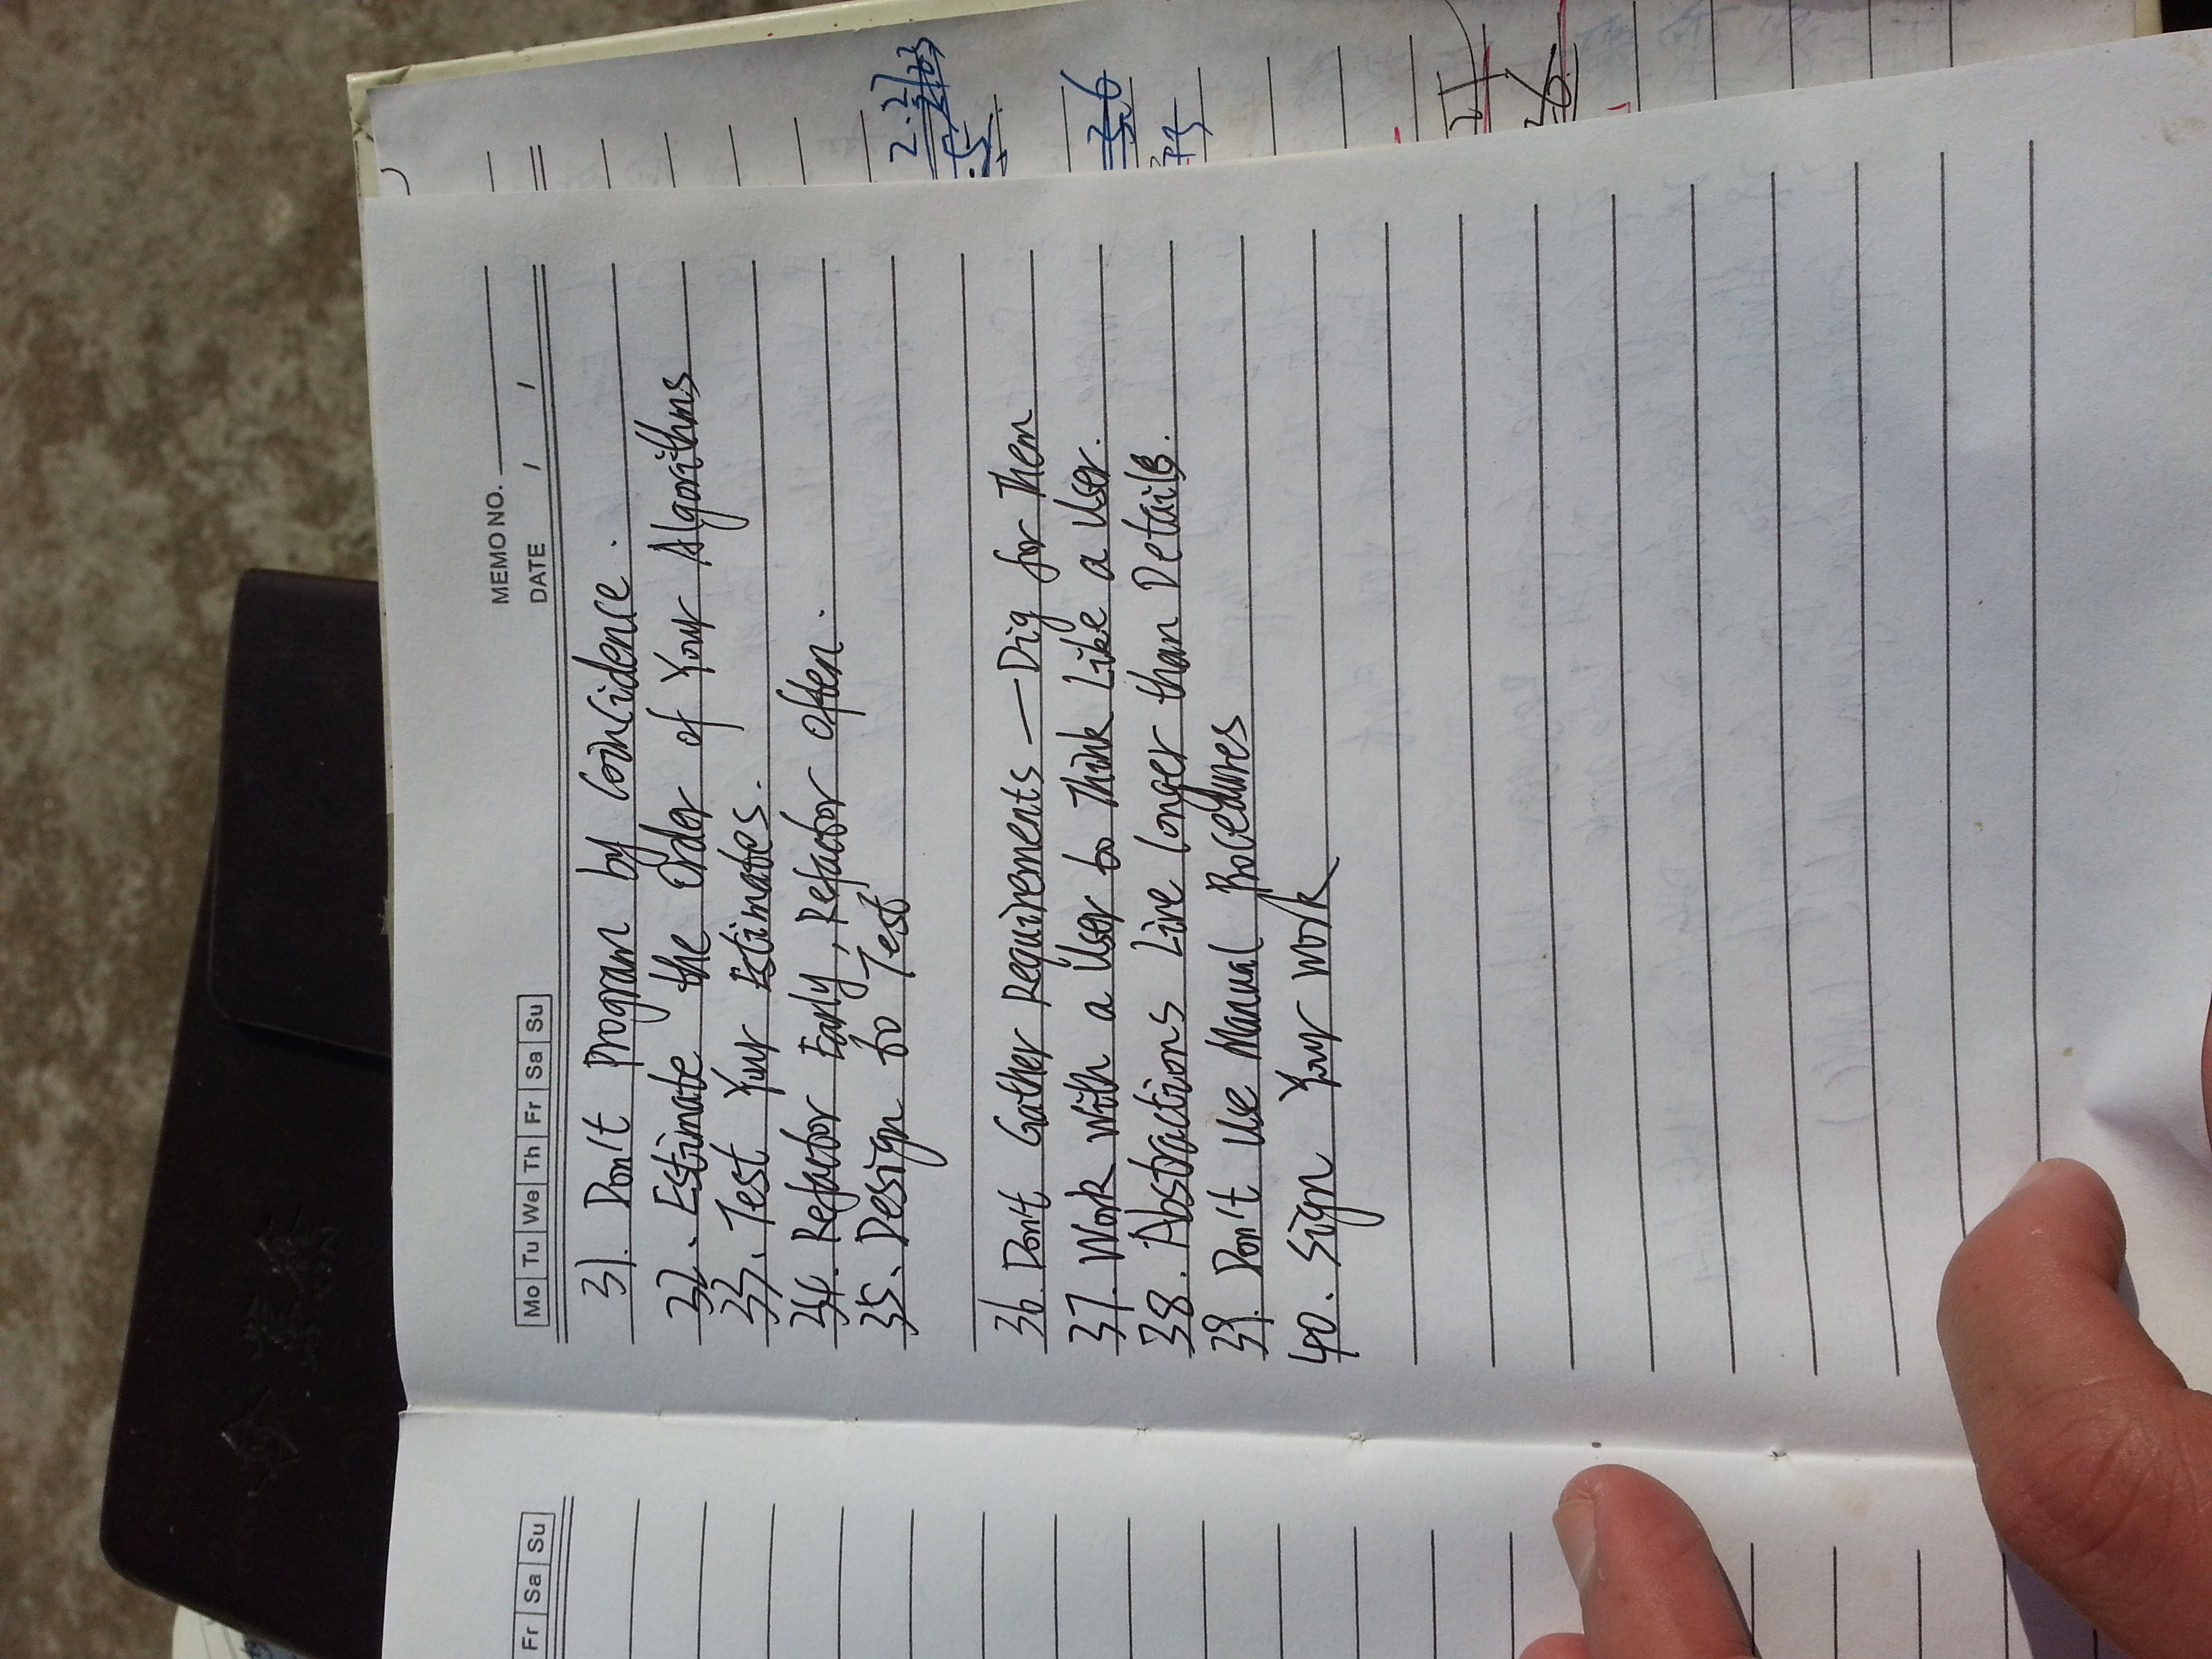 Fr Sa Su
Mo Tu We Th Fr Sa Su
MEMO NO.
DATE / /
31. Don't Program by Coincidence.
32. Estimate the Order of Your Algorithms
33. Test Your Estimates.
34. Refactor Early, Refactor Often.
35. Design to Test
36. Don't Gather Requirements — Dig for Them
37. Work with a User to Think Like a User.
38. Abstractions Live longer than Details.
39. Don't Use Manual Procedures
40. Sign Your Work
2.27
3.6